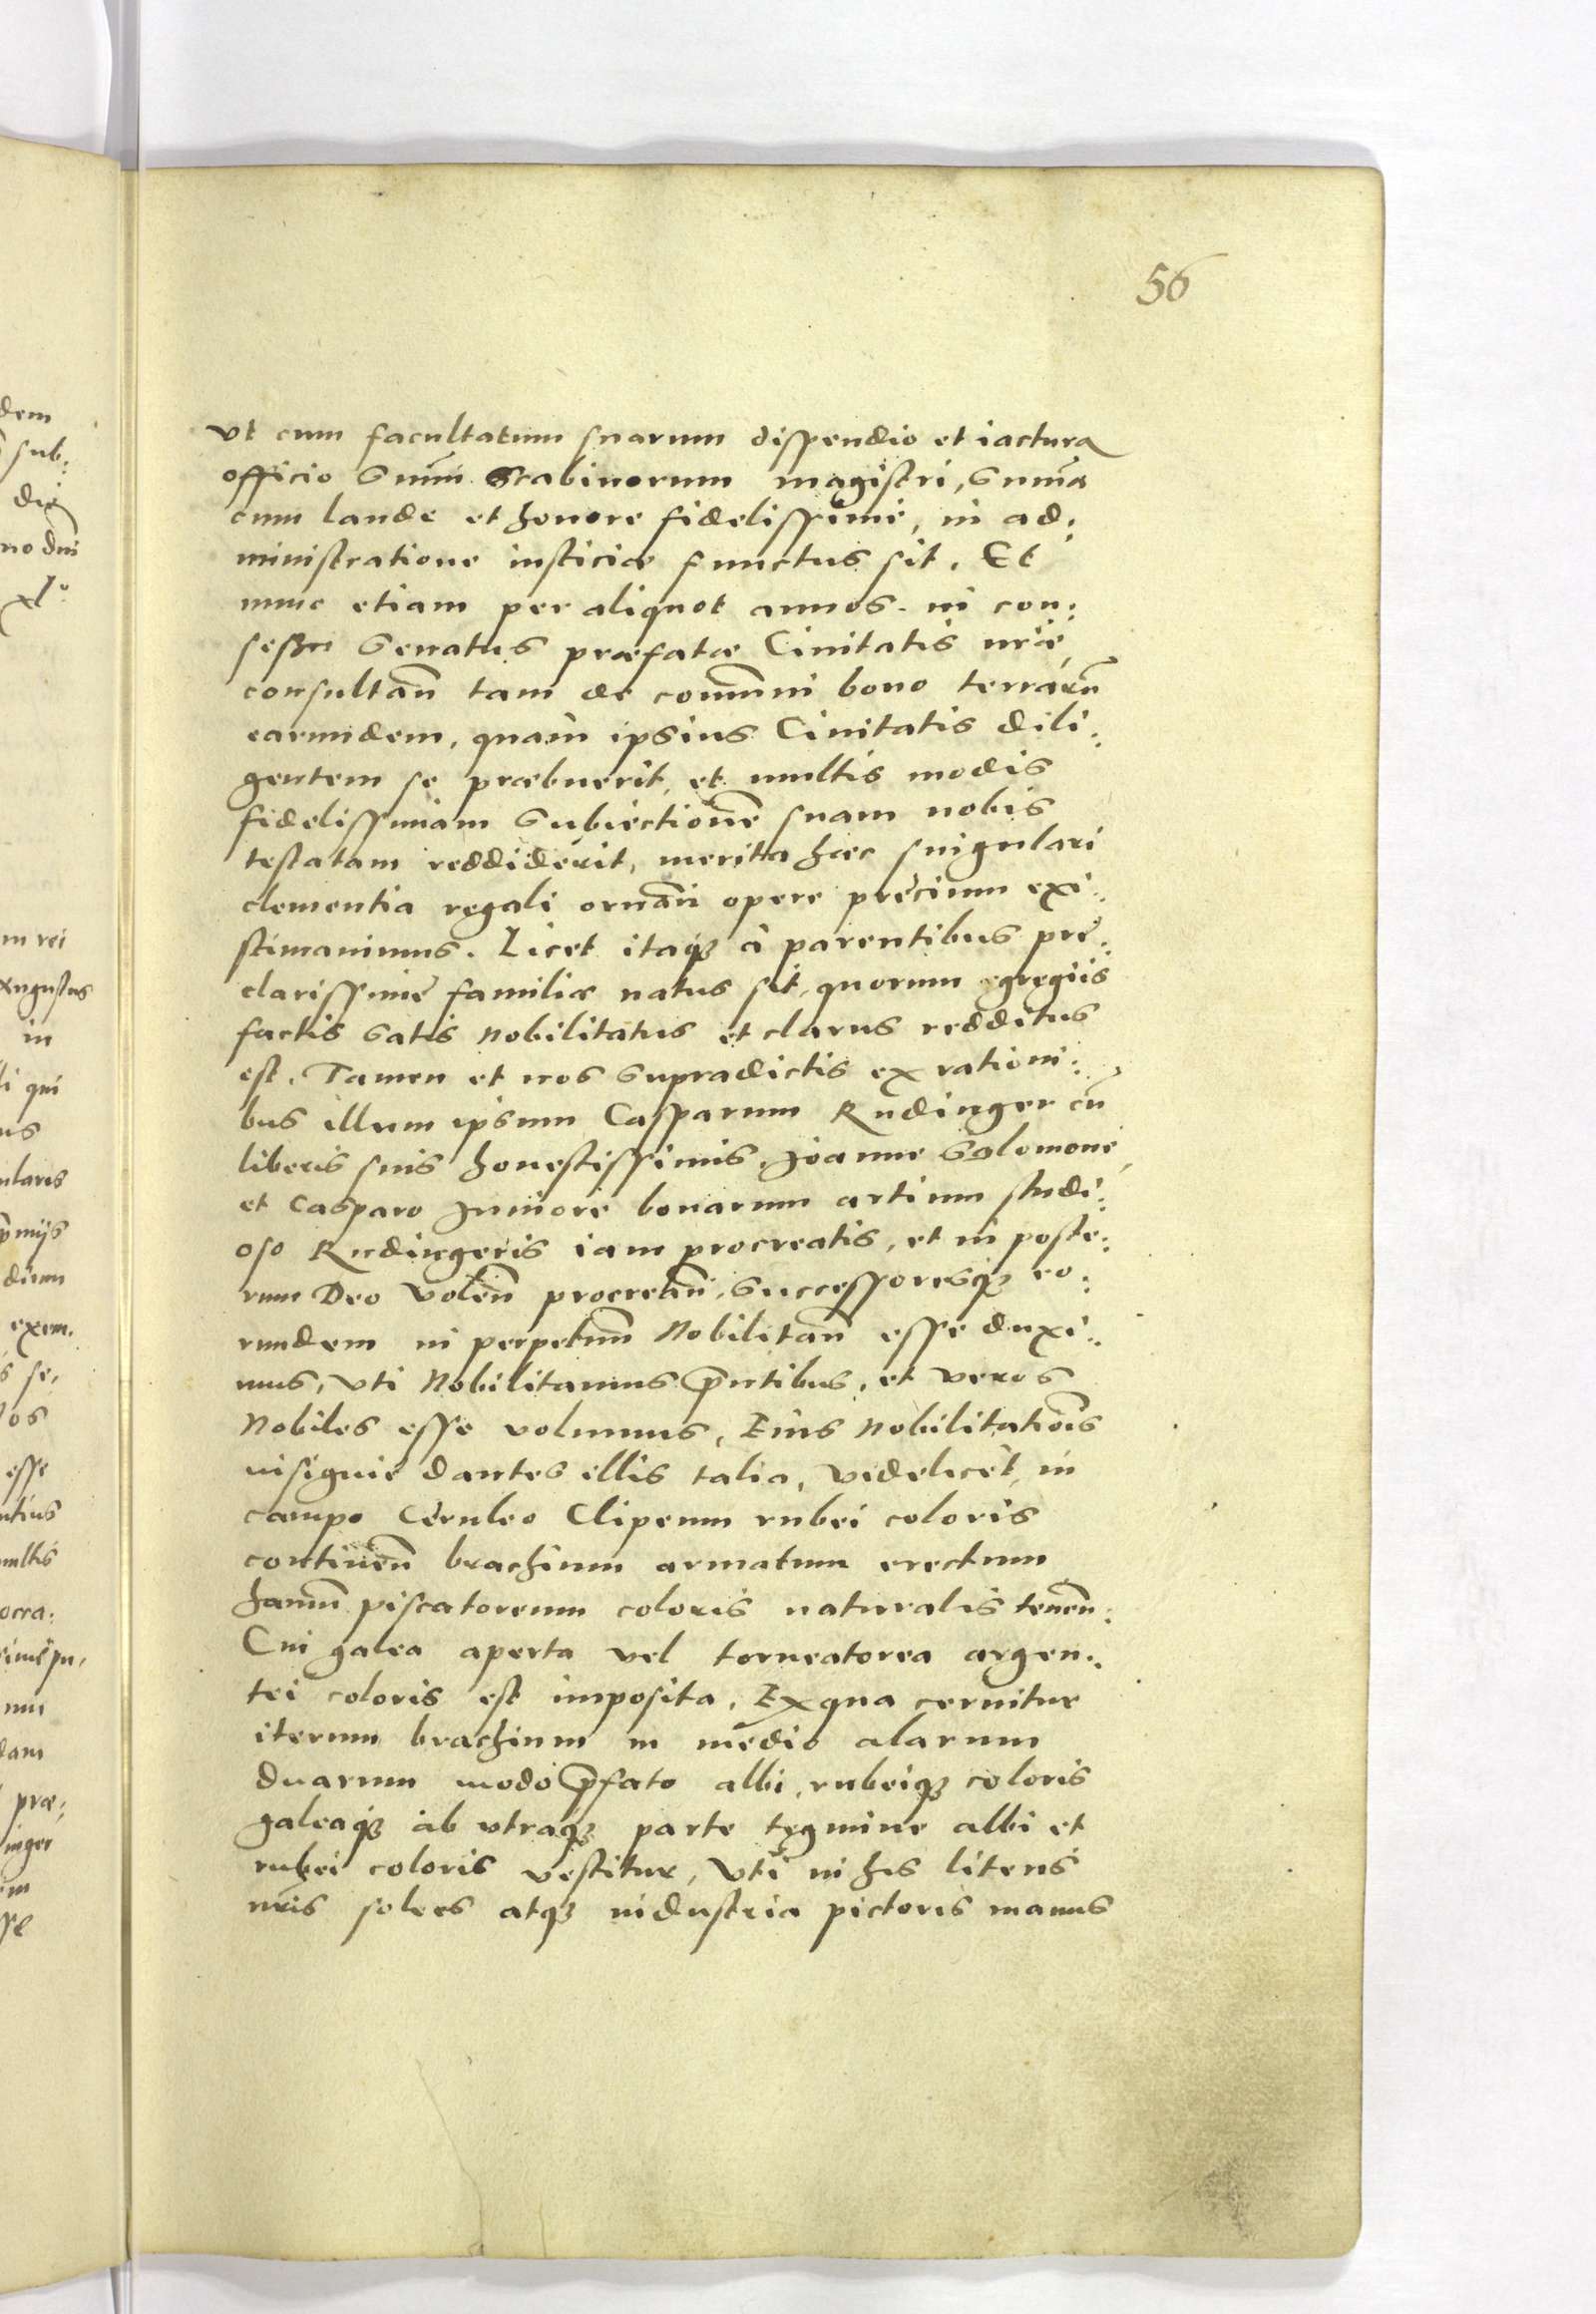 56
vt cum facultatum suarum dispendio et iactura
officio Summi Scabinorum magistri, Summa
cum laude et honore fidelissime, in ad:
ministratione iusticiæ functus sit. Et
nunc etiam per aliquot annos in con:
sessu Senatus præfatæ Ciuitatis nr̄æ,
consultan̄ tam de com̄uni bono terrarū
earundem, quam ipsius Ciuitatis dili:
gentem se præbuerit, et multis modis
fidelissimam Subiectionē suam nobis
testatam reddiderit, merita hæc singulari
clementia regali ornan̄ opere precium exi:
stimauimus. Licet itaq3 à parentibus pre:
clarissimę familiæ natus sit, quorum egregijs
factis Satis Nobilitatus et clarus redditus
est. Tamen et nos Supradictis ex rationi:
bus illum ipsum Casparum Rudinger cū
liberis suis honestissimis, Joanne Solomone,
et Casparo Juniore bonarum artium studi:
oso Rudingeris iam procreatis, et in poste:
rum Deo volen̄ procrean̄, Successoresq3 eo:
rundem in perpetuū Nobilitan̄ esse duxi:
mus, vti Nobilitamus p̄ntibus, et veros
Nobiles esse volumus, Eius Nobilitatiōis
insignia dantes illis talia, videlicet, in
campo Ceruleo Clipeum rubei coloris
continen̄ brachium armatum erectum
hamū piscatoreum coloris naturalis tenen̄:
Cui galea aperta vel torneatorea argen:
tei coloris est imposita. Ex qua cernitur
iterum brachium in medio alarum
duarum modo p̄fato albi, rubeiq3 coloris
galeaq3 ab vtraq3 parte tegmine albi et
rubei coloris vestitur, vti in his literis
nr̄is solers atq3 industria pictoris manus
dem
sub:
die
no dnī
xlº
m rei
Augustus
in
li qui
us
ularis
p̄mijs
dium
exem.
s se,
los
esse
ntius
multis
ocra:
num
dam
præ:
inger
um
sse